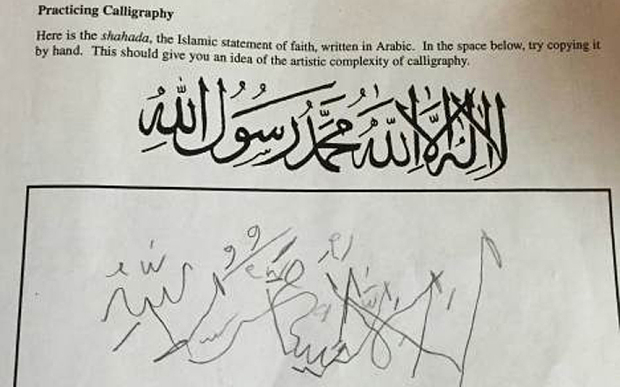 Practicing Calligraphy
Here is the shahada, the Islamic statement of faith, written in Arabic. In the space below, try copying it
by hand. This should give you an idea of the artistic complexity of calligraphy.
لا إله إلا الله محمد رسول الله